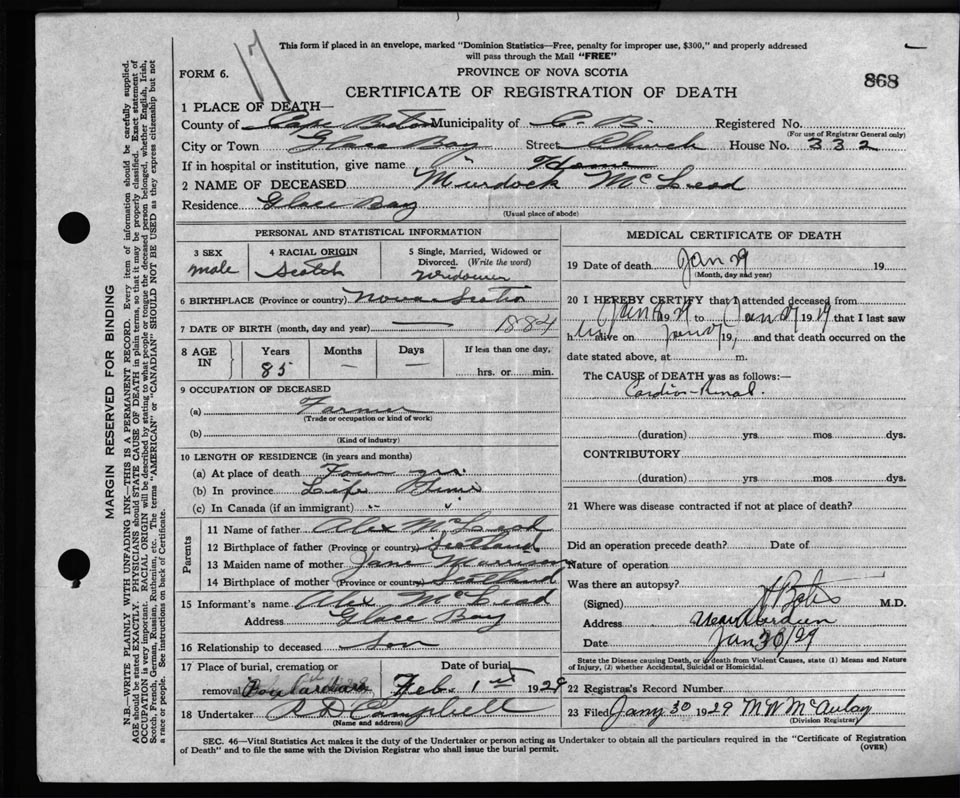 This form if placed in an envelope, marked "Dominion Statistics—Free, penalty for improper use, $300," and properly addressed
will pass through the Mail "FREE"
17
FORM 6.
PROVINCE OF NOVA SCOTIA
868
CERTIFICATE OF REGISTRATION OF DEATH
1 PLACE OF DEATH—
County of Cape Breton Municipality of C. B. Registered No.
(For use of Registrar General only)
City or Town Glace Bay Street Church House No. 332
If in hospital or institution, give name Home
2 NAME OF DECEASED Murdock McLeod
Residence Glace Bay
(Usual place of abode)
PERSONAL AND STATISTICAL INFORMATION
3 SEX
male
4 RACIAL ORIGIN
Scotch
5 Single, Married, Widowed or
Divorced. (Write the word)
Widower
6 BIRTHPLACE (Province or country) Nova Scotia
7 DATE OF BIRTH (month, day and year) — 1884
8 AGE
IN
Years
85
Months
—
Days
—
If less than one day,
hrs. or min.
9 OCCUPATION OF DECEASED
(a) Farmer
(Trade or occupation or kind of work)
(b)
(Kind of industry)
10 LENGTH OF RESIDENCE (in years and months)
(a) At place of death Four yrs.
(b) In province Life Time
(c) In Canada (if an immigrant)
Parents
11 Name of father Alex McLeod
12 Birthplace of father (Province or country) Scotland
13 Maiden name of mother Jane Morrison
14 Birthplace of mother (Province or country) Scotland
15 Informant's name Alex McLeod
Address Glace Bay
16 Relationship to deceased Son
17 Place of burial, cremation or
removal Boulardarie
Date of burial
Feb. 1st 1929
18 Undertaker R D Campbell
(Name and address)
MEDICAL CERTIFICATE OF DEATH
19 Date of death Jan 29 19
(Month, day and year)
20 I HEREBY CERTIFY that I attended deceased from
Jan 19 to Jan 19 29 that I last saw
him alive on Jan 19 , and that death occurred on the
date stated above, at m.
The CAUSE of DEATH was as follows:—
Cardio-Renal.
(duration) yrs mos dys.
CONTRIBUTORY
(duration) yrs mos dys.
21 Where was disease contracted if not at place of death?
Did an operation precede death? Date of
Nature of operation
Was there an autopsy?
(Signed) M.D.
Address New Aberdeen
Date Jan 30/29
State the Disease causing Death, or in death from Violent Causes, state (1) Means and Nature
of Injury, (2) whether Accidental, Suicidal or Homicidal.
22 Registrar's Record Number
23 Filed Jany 30 1929 M W McAulay
(Division Registrar)
SEC. 46—Vital Statistics Act makes it the duty of the Undertaker or person acting as Undertaker to obtain all the particulars required in the "Certificate of Registration
of Death" and to file the same with the Division Registrar who shall issue the burial permit.
(OVER)
MARGIN RESERVED FOR BINDING
N.B.—WRITE PLAINLY WITH UNFADING INK—THIS IS A PERMANENT RECORD. Every item of information should be carefully supplied.
AGE should be stated EXACTLY. PHYSICIANS should STATE CAUSE OF DEATH in plain terms, so that it may be properly classified. Exact statement of
OCCUPATION is very important. RACIAL ORIGIN will be described by stating to what people or tongue the deceased person belonged, whether English, Irish,
Scotch, French, German, Russian, Ruthenian, etc. The terms "AMERICAN" or "CANADIAN" SHOULD NOT BE USED as they express citizenship but not
a race or people. See instructions on back of Certificate.